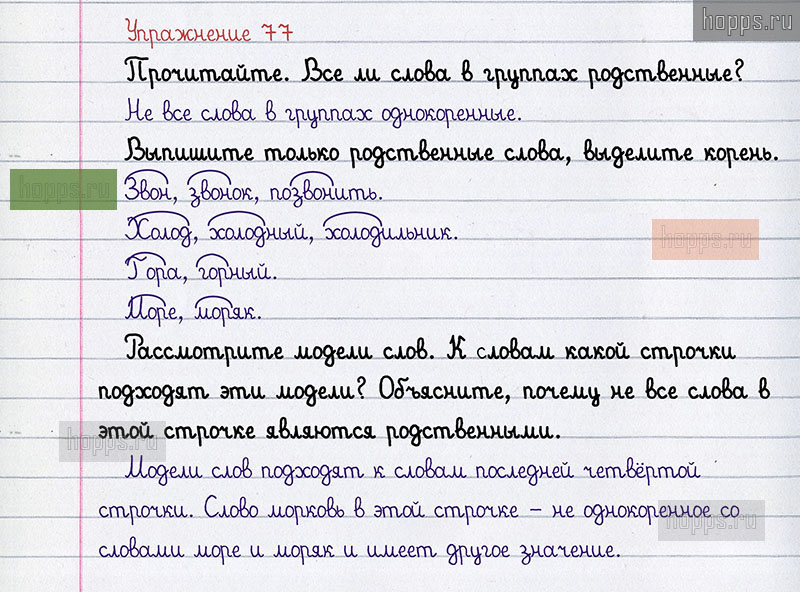 hopps.ru
Упражнение 77
Прочитайте. Все ли слова в группах родственные?
Не все слова в группах однокоренные.
Выпишите только родственные слова, выделите корень.
hopps.ru
Звон, звонок, позвонить.
Холод, холодный, холодильник.
hopps.ru
Гора, горный.
Море, моряк.
Рассмотрите модели слов. К словам какой строчки
подходят эти модели? Объясните, почему не все слова в
этой строчке являются родственными.
hopps.ru
Модели слов подходят к словам последней четвёртой
строчки. Слово морковь в этой строчке – не однокоренное со
hopps.ru
словами море и моряк и имеет другое значение.